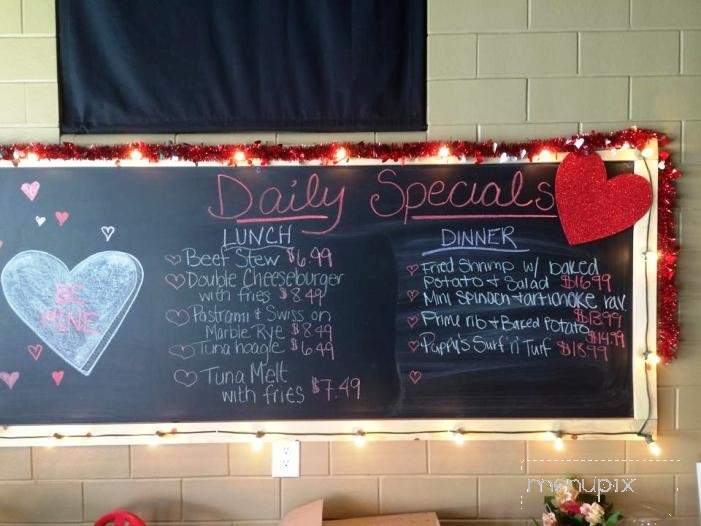 Daily Specials
LUNCH
Beef Stew $6.99
Double Cheeseburger
with fries $8.49
Pastrami & Swiss on
Marble Rye $8.49
Tuna hoagie $6.49
Tuna Melt
with fries $7.49
DINNER
Fried Shrimp w/ baked
Potato & Salad $16.99
Mini spinach & artichoke rav.
$13.99
Prime rib & Baked Potato
$14.99
Pappy's Surf 'n' Turf $18.99
BE
MINE
menupix